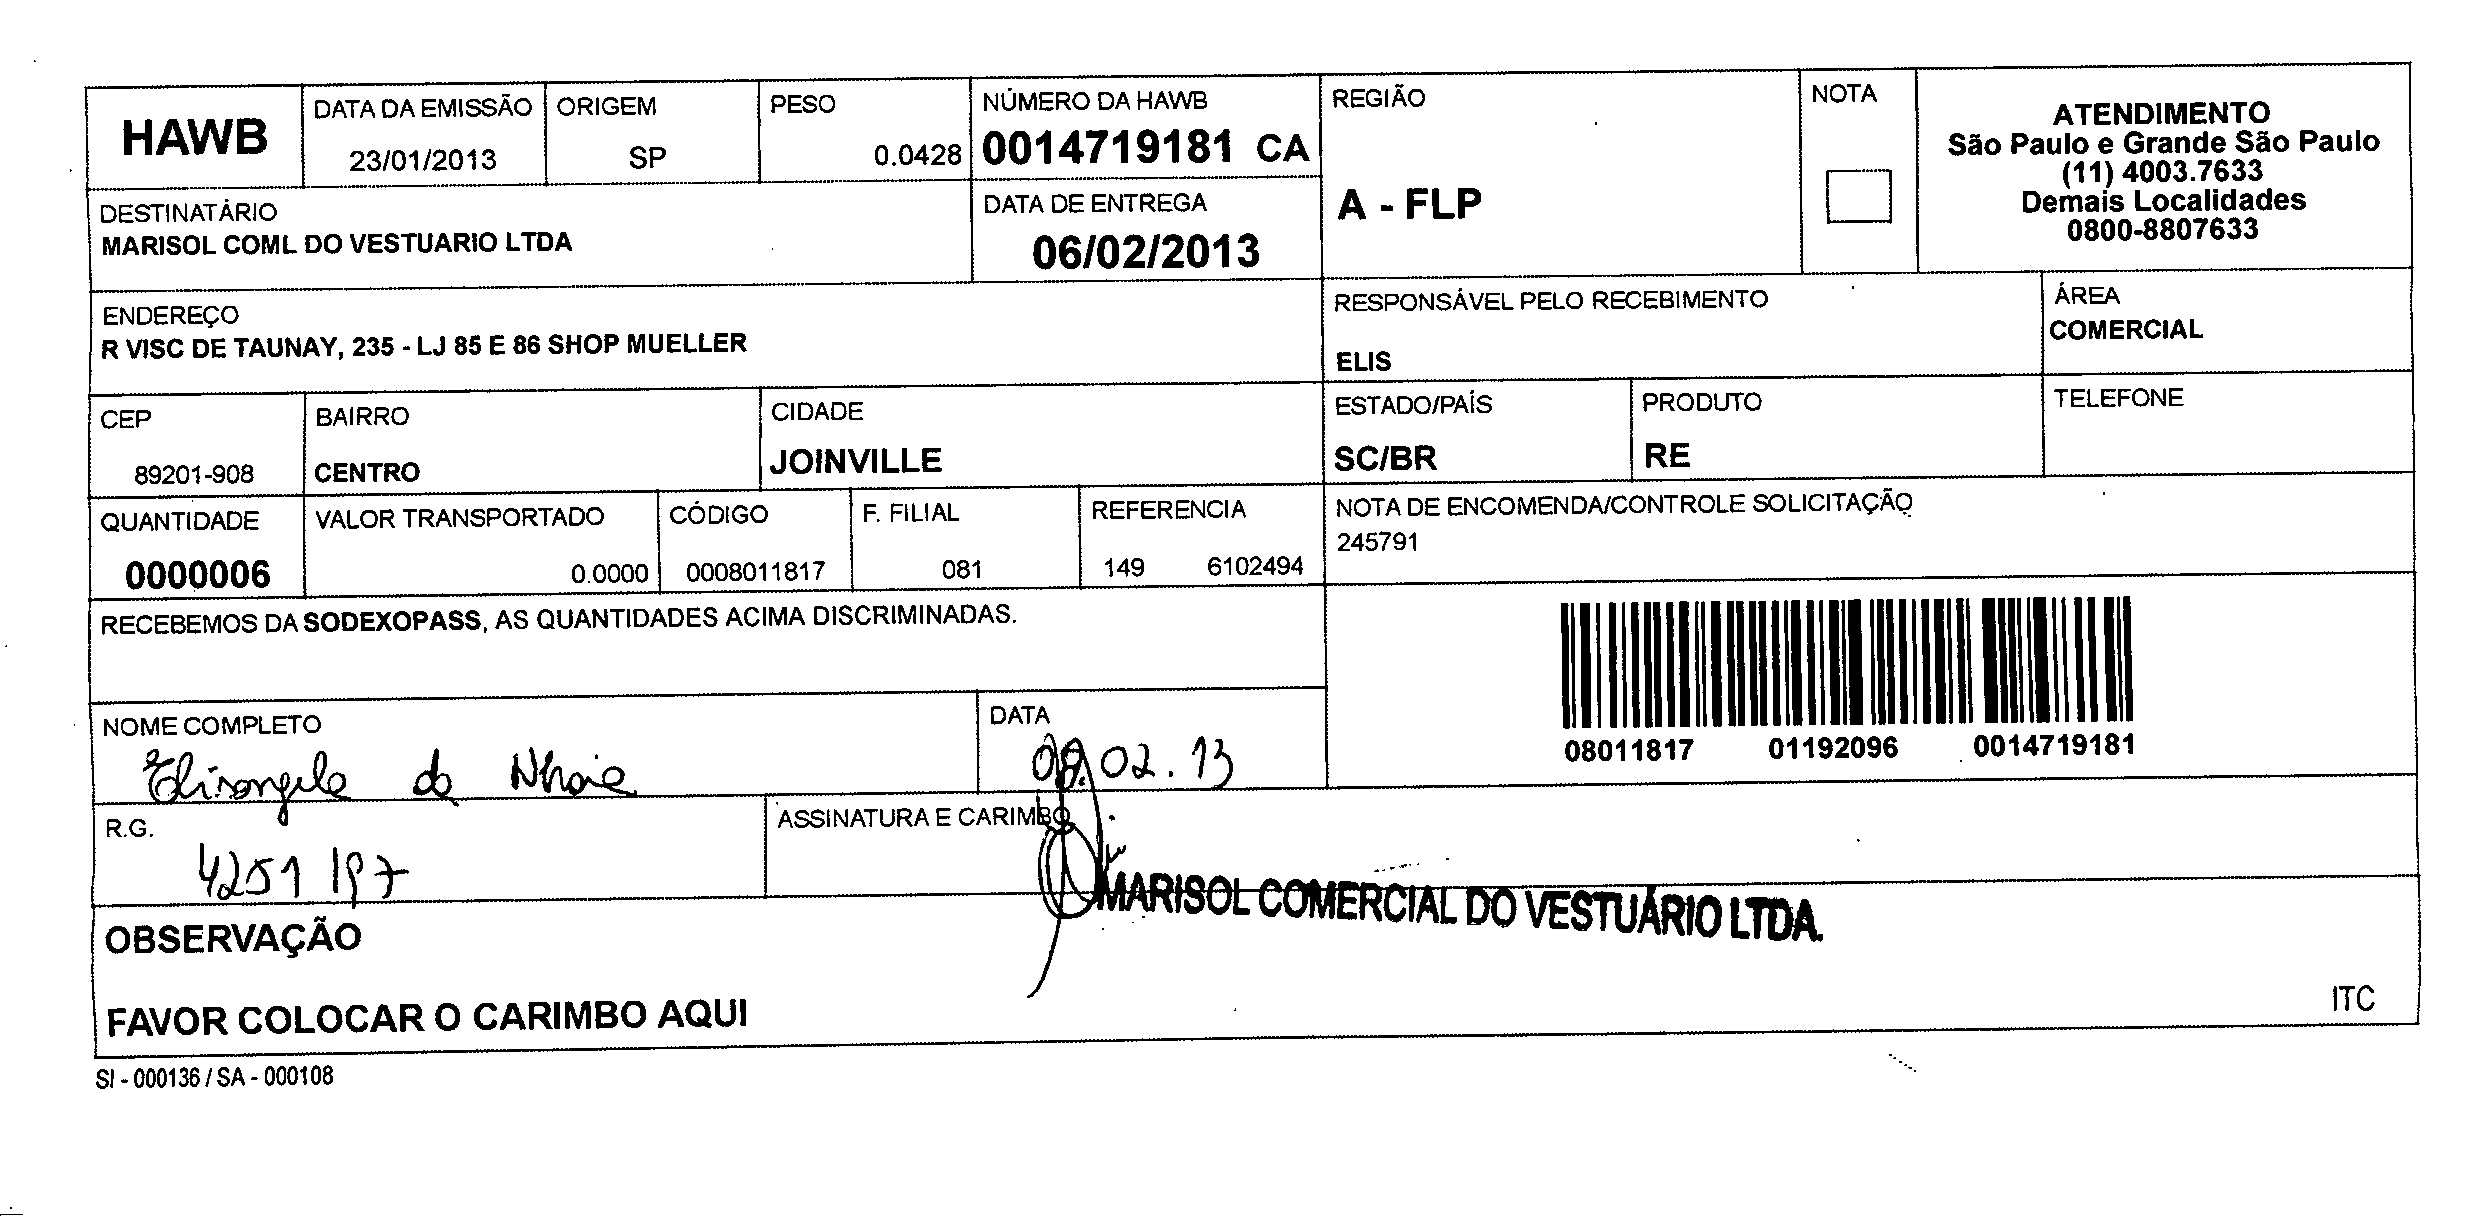 HAWB
DATA DA EMISSÃO
23/01/2013
ORIGEM
SP
PESO
0.0428
NÚMERO DA HAWB
0014719181 CA
REGIÃO
A - FLP
NOTA
ATENDIMENTO
São Paulo e Grande São Paulo
(11) 4003.7633
Demais Localidades
0800-8807633
DESTINATÁRIO
MARISOL COML DO VESTUARIO LTDA
DATA DE ENTREGA
06/02/2013
ENDEREÇO
R VISC DE TAUNAY, 235 - LJ 85 E 86 SHOP MUELLER
RESPONSÁVEL PELO RECEBIMENTO
ELIS
ÁREA
COMERCIAL
CEP
89201-908
BAIRRO
CENTRO
CIDADE
JOINVILLE
ESTADO/PAÍS
SC/BR
PRODUTO
RE
TELEFONE
QUANTIDADE
0000006
VALOR TRANSPORTADO
0.0000
CÓDIGO
0008011817
F. FILIAL
081
REFERENCIA
149 6102494
NOTA DE ENCOMENDA/CONTROLE SOLICITAÇÃO
245791
RECEBEMOS DA SODEXOPASS, AS QUANTIDADES ACIMA DISCRIMINADAS.
08011817 01192096 0014719181
NOME COMPLETO
Elisangela da
DATA
02.13
R.G.
4251 197
ASSINATURA E CARIMBO
MARISOL COMERCIAL DO VESTUÁRIO LTDA.
OBSERVAÇÃO
FAVOR COLOCAR O CARIMBO AQUI
ITC
SI - 000136 / SA - 000108